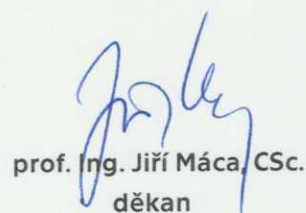 prof. Ing. Jiří Máca, CSc.
děkan